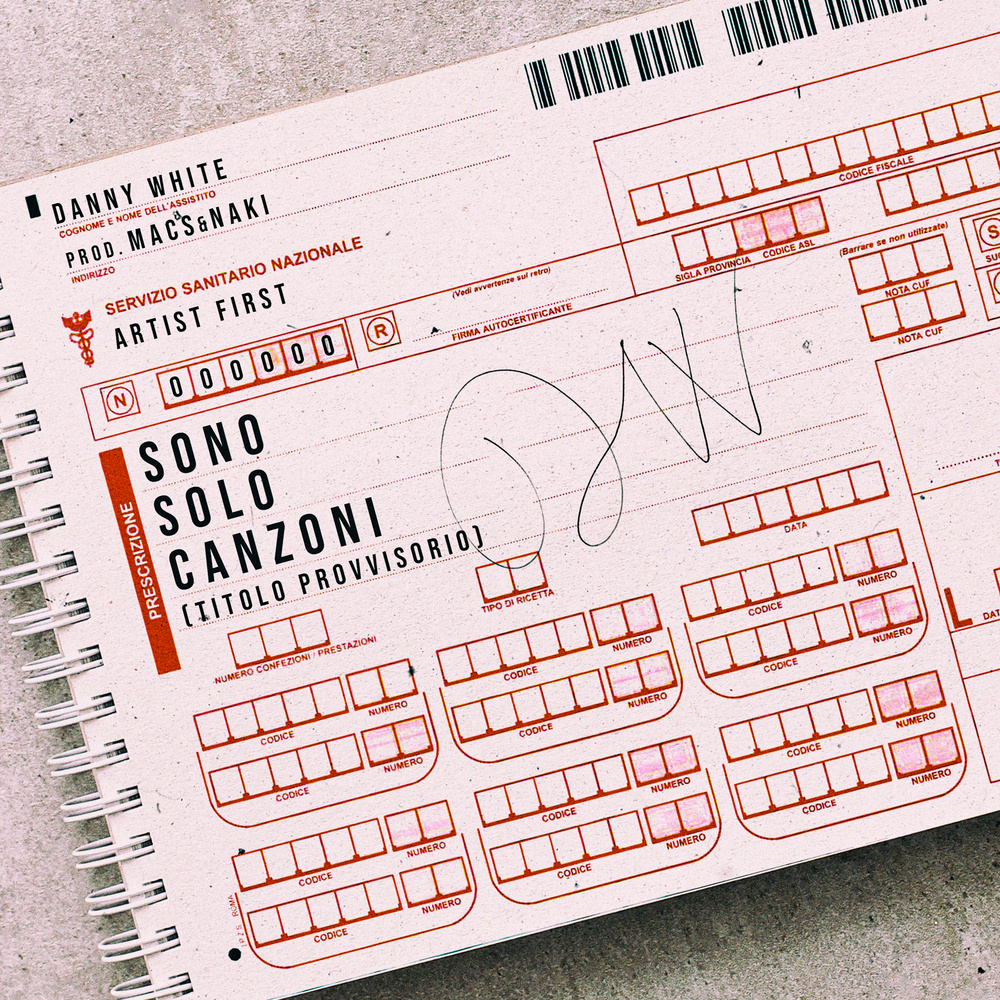 DANNY WHITE
COGNOME E NOME DELL'ASSISTITO
PROD. MACS&NAKI
INDIRIZZO
SERVIZIO SANITARIO NAZIONALE
ARTIST FIRST
(Vedi avvertenze sul retro)
FIRMA AUTOCERTIFICANTE
N 000000 R
CODICE FISCALE
SIGLA PROVINCIA CODICE ASL
(Barrare se non utilizzate)
NOTA CUF
NOTA CUF
PRESCRIZIONE
SONO
SOLO
CANZONI
(TITOLO PROVVISORIO)
DW
DATA
TIPO DI RICETTA
NUMERO CONFEZIONI / PRESTAZIONI
CODICE NUMERO
CODICE NUMERO
CODICE NUMERO
CODICE NUMERO
CODICE NUMERO
CODICE NUMERO
CODICE NUMERO
CODICE NUMERO
CODICE NUMERO
CODICE NUMERO
CODICE NUMERO
CODICE NUMERO
I.P.Z.S. ROMA